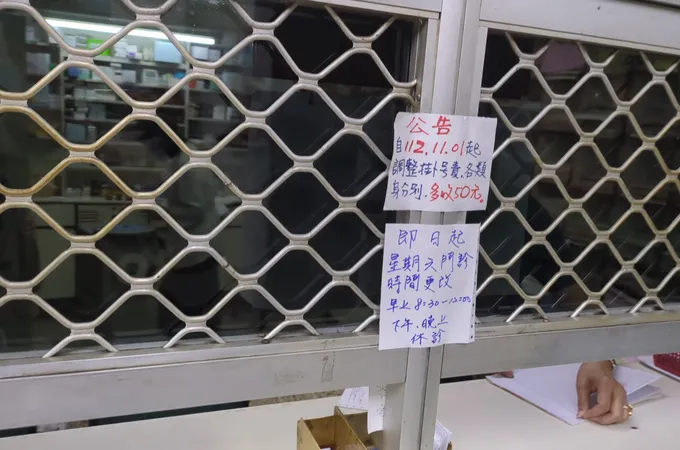 公告
自112.11.01起
調整挂号費.各類
身分別.多收50元。
即日起
星期天門診
時間更改
早上8:30-12:00
下午.晚上
休診